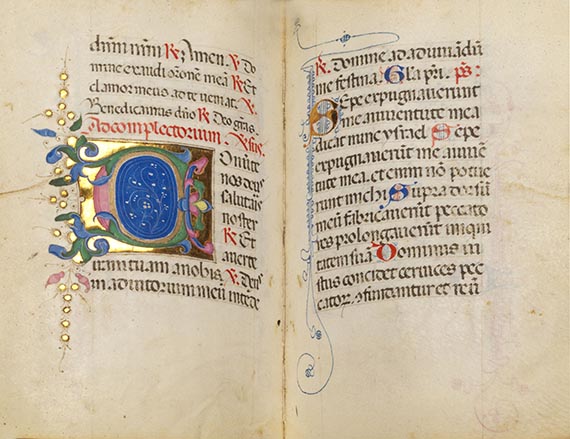 dn̄m nr̄m ℟ Amen. ℣. Do
mine exaudi or̄one meā ℟ Et
clamor meus ad te veniat. ℣.
Benedicamus dn̄o ℟ Deo gr̄as.
Ad complectorium. ℣sus.
Onūte
nos deus
salutaris
noster
℟ Et
averte
iram tuam a nobis. ℣. Deus
in adiutorium meū intēde
℟. Domine ad adiuuādū
me festina. Gl̄a pr̄i. ps.
Sepe expugnaverunt
me a iuventute mea
dicat nunc ysrael. Sepe
expugnaverunt me a iuuē
tute mea. et enim nō potue
runt michi. Supra dorsū
meū fabricaverunt peccato
res prolongaverunt iniqui
tatem suā. Dominus iu
stus concidet cervices pec
catorū ꝯfundantur et reu̅